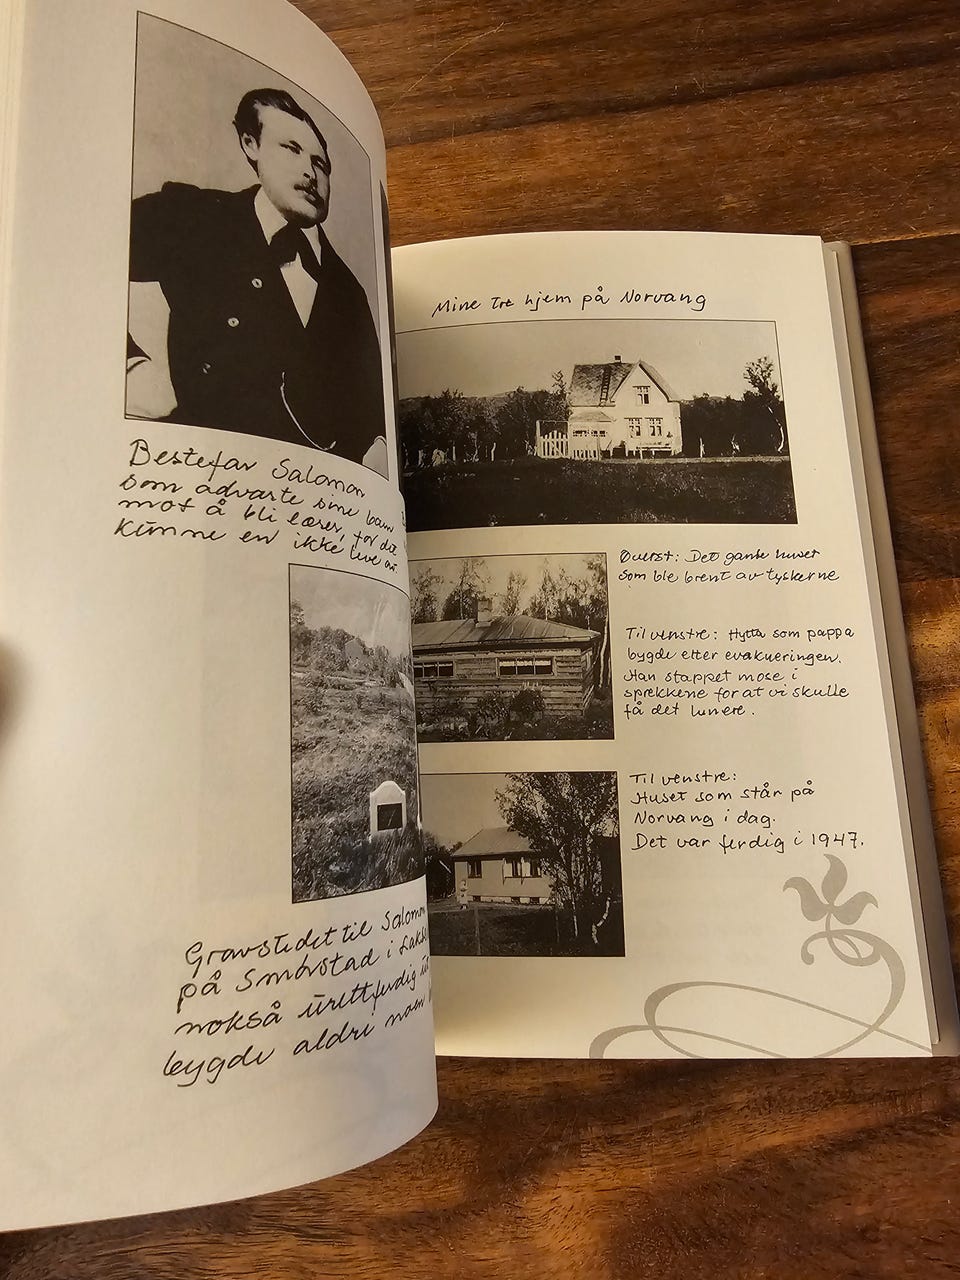 Bestefar Salomon
som advarte sine barn
mot å bli lærer, for det
kunne en ikke leve av
Gravstedet til Salomon
på Smørstad i Laks
nokså urettferdig
bygde aldri noen
Mine tre hjem på Norvang
Øverst: Det gamle huset
som ble brent av tyskerne
Til venstre: Hytta som pappa
bygde etter evakueringen.
Han stappet mose i
sprekkene for at vi skulle
få det lunere.
Til venstre:
Huset som står på
Norvang i dag.
Det var ferdig i 1947.